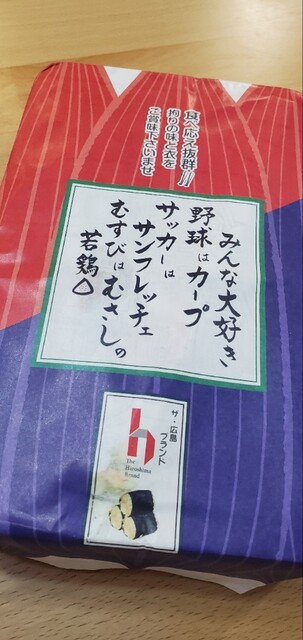 食べ応え抜群!!
拘りの味と衣を
ご賞味下さいませ
みんな大好き
野球はカープ
サッカーは
サンフレッチェ
むすびはむさしの
若鶏△
ザ・広島
ブランド
The
Hiroshima
Brand